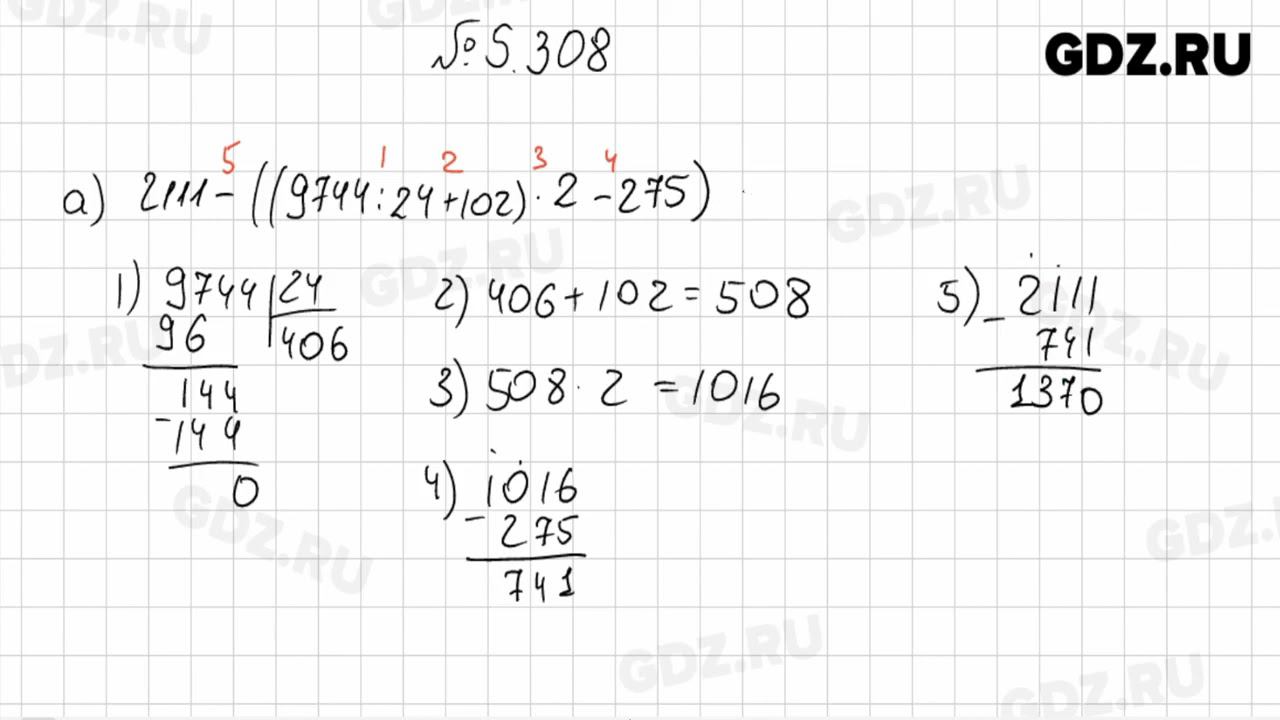 № 5.308
GDZ.RU
5 1 2 3 4
а) 2111-((9744:24+102)·2-275)
1) 9744 24
96 406
144
-144
0
2) 406+102=508
3) 508·2=1016
4) 1016
- 275
741
5) 2111
- 741
1370
GDZ.RU
GDZ.RU
GDZ.RU
GDZ.RU
GDZ.RU
GDZ.RU
GDZ.RU
GDZ.RU
GDZ.RU
GDZ.RU
GDZ.RU